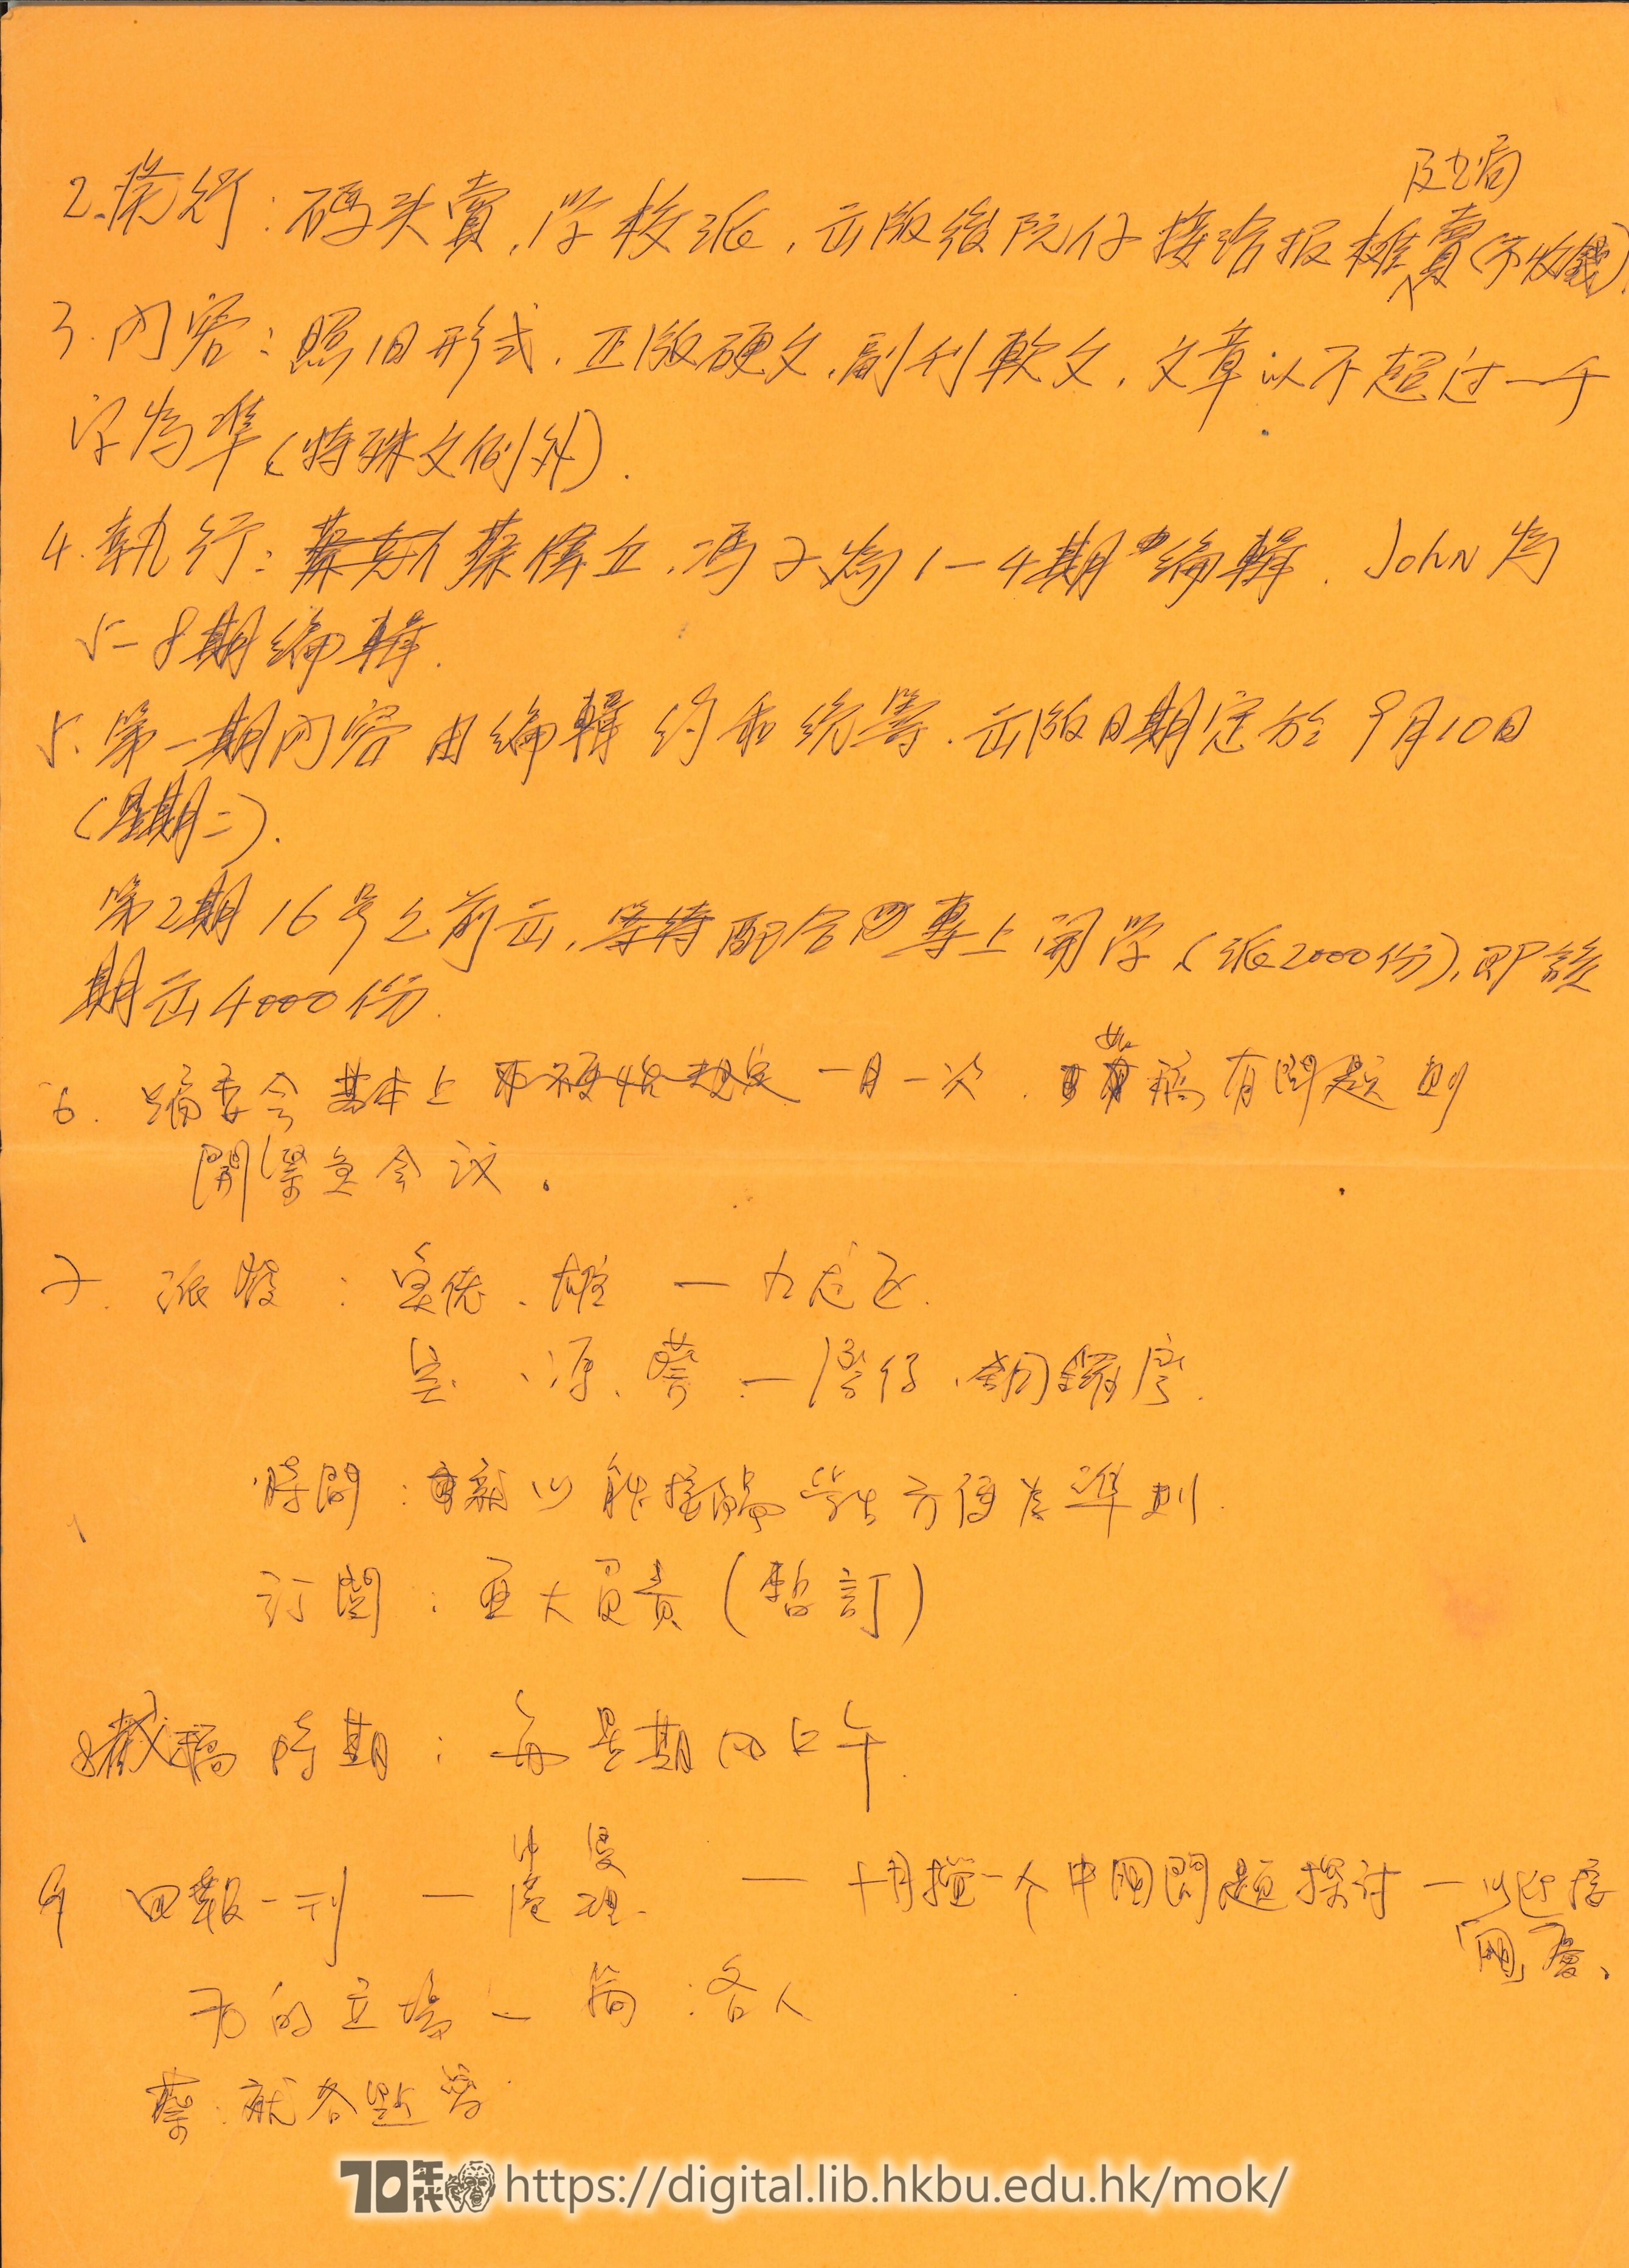 及书局
2. 發行：碼头賣，学校派，出版後阮仔接洽报攤賣(不收錢).
3. 内容：照旧形式．正版硬文，副刊軟文，文章以不超过一千
字為準(特殊文例外).
4. 執行：蔡偉立．馮子為1-4期編輯．John為
5-8期編輯.
5. 第一期内容由編輯约和統籌．出版日期定於9月10日
(星期二).
第2期16号之前出，等待配合四專上開学(派2000份)，即該
期出4000份.
6. 編委会基本上不硬性規定一月一次．如稿有問題則
開緊急会议．
7. 派發：吳依、雄 — 九龙区.
吳、源、蔡 — 湾仔、铜鑼湾.
時間：以能接触学生方便為準則.
订閱：亜大負責(暫訂)
8 截稿時期：每星期四下午.
9 四報一刊 — 處理. — 十月搅一个中国問題探讨 — 以迎接
「國」慶、
方的立場 — 簡：各人
蔡：就各點寫
70年代 https://digital.lib.hkbu.edu.hk/mok/